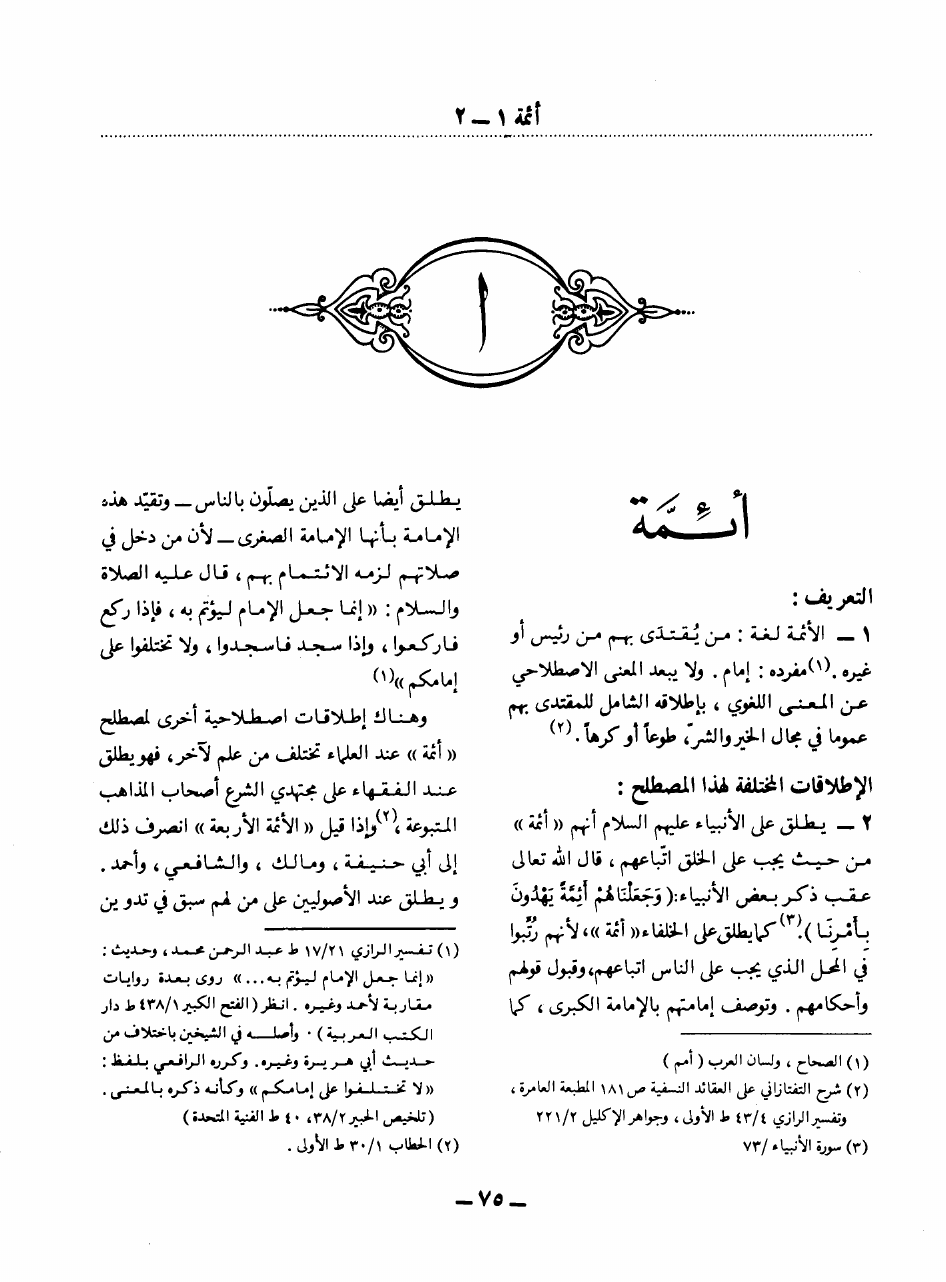 أئمة ١ – ٢
أ
أئمة
التعريف :
١ – الأئمة لغة : من يُقتدَى بهم من رئيس أو
غيره .(١) مفرده : إمام . ولا يبعد المعنى الاصطلاحي
عن المعنى اللغوي ، بإطلاقه الشامل للمقتدى بهم
عموما في مجال الخير والشرّ، طوعاً أو كرهاً .(٢)
الإطلاقات المختلفة لهذا المصطلح :
٢ – يطلق على الأنبياء عليهم السلام أنهم « أئمة »
من حيث يجب على الخلق اتّباعهم ، قال الله تعالى
عقب ذكر بعض الأنبياء:( وَجَعَلْنَاهُمْ أَئِمَّةً يَهْدُونَ
بِأَمْرِنَا ).(٣) كما يطلق على الخلفاء « أئمة »، لأنهم رُتِّبوا
في المحل الذي يجب على الناس اتباعهم، وقبول قولهم
وأحكامهم . وتوصف إمامتهم بالإمامة الكبرى ، كما
(١) الصحاح ، ولسان العرب ( أمم )
(٢) شرح التفتازاني على العقائد النسفية ص ١٨١ المطبعة العامرة ،
وتفسير الرازي ٤٣/٤ ط الأولى ، وجواهر الإكليل ٢٢١/٢
(٣) سورة الأنبياء /٧٣
يطلق أيضا على الذين يصلّون بالناس – وتقيّد هذه
الإمامة بأنها الإمامة الصغرى – لأن من دخل في
صلاتهم لزمه الائتمام بهم ، قال عليه الصلاة
والسلام : « إنما جعل الإمام ليؤتم به ، فإذا ركع
فاركعوا ، وإذا سجد فاسجدوا ، ولا تختلفوا على
إمامكم »(١)
وهناك إطلاقات اصطلاحية أخرى لمصطلح
« أئمة » عند العلماء تختلف من علم لآخر، فهو يطلق
عند الفقهاء على مجتهدي الشرع أصحاب المذاهب
المتبوعة ،(٢) وإذا قيل « الأئمة الأربعة » انصرف ذلك
إلى أبي حنيفة ، ومالك ، والشافعي ، وأحمد .
ويطلق عند الأصوليين على من لهم سبق في تدوين
(١) تفسير الرازي ١٧/٢١ ط عبد الرحمن محمد، وحديث :
« إنما جعل الإمام ليؤتم به ... » روى بعدة روايات
مقاربة لأحمد وغيره . انظر ( الفتح الكبير ٤٣٨/١ ط دار
الكتب العربية ) . وأصله في الشيخين باختلاف من
حديث أبي هريرة وغيره. وكرره الرافعي بلفظ :
« لا تختلفوا على إمامكم » وكأنه ذكره بالمعنى .
( تلخيص الحبير ٣٨/٢، ٤٠ ط الفنية المتحدة )
(٢) الحطاب ٣٠/١ ط الأولى .
– ٧٥ –